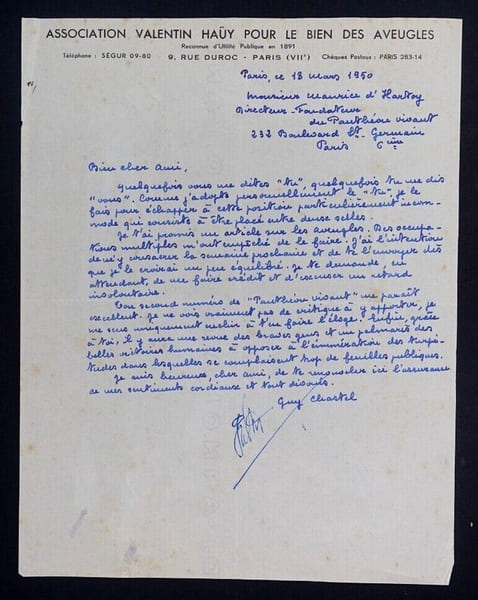 ASSOCIATION VALENTIN HAÜY POUR LE BIEN DES AVEUGLES
Reconnue d'Utilité Publique en 1891
Téléphone : SÉGUR 09-80 9, RUE DUROC - PARIS (VIIe) Chèques Postaux : PARIS 283-14
Paris, le 18 mars 1950
Monsieur Maurice d'Hartoy
Directeur-Fondateur
du Panthéon vivant
232 Boulevard St-Germain
Paris 6ème
Bien cher ami,
Quelquefois vous me dites "tu", quelquefois tu me dis
"vous". Comme j'adopte personnellement le "tu", je le
fais pour échapper à cette position particulièrement incom-
mode qui consiste à être placé entre deux selles.
Je t'ai promis un article sur les aveugles. Des occupa-
tions multiples m'ont empêché de le faire. J'ai l'intention
de m'y consacrer la semaine prochaine et de te l'envoyer dès
que je le croirai un peu équilibré. Je te demande, en
attendant, de me faire crédit et d'excuser un retard
involontaire.
Ton second numéro de "Panthéon vivant" me paraît
excellent. Je ne vois vraiment pas de critique à y apporter, je
me sens uniquement enclin à t'en faire l'éloge. Enfin, grâce
à toi, il y aura une revue des braves gens et un palmarès des
belles victoires humaines à opposer à l'énumération des turpi-
tudes dans lesquelles se complaisent trop de feuilles publiques.
Je suis heureux, cher ami, de te renouveler ici l'assurance
de mes sentiments cordiaux et tout dévoués.
Guy Chastel